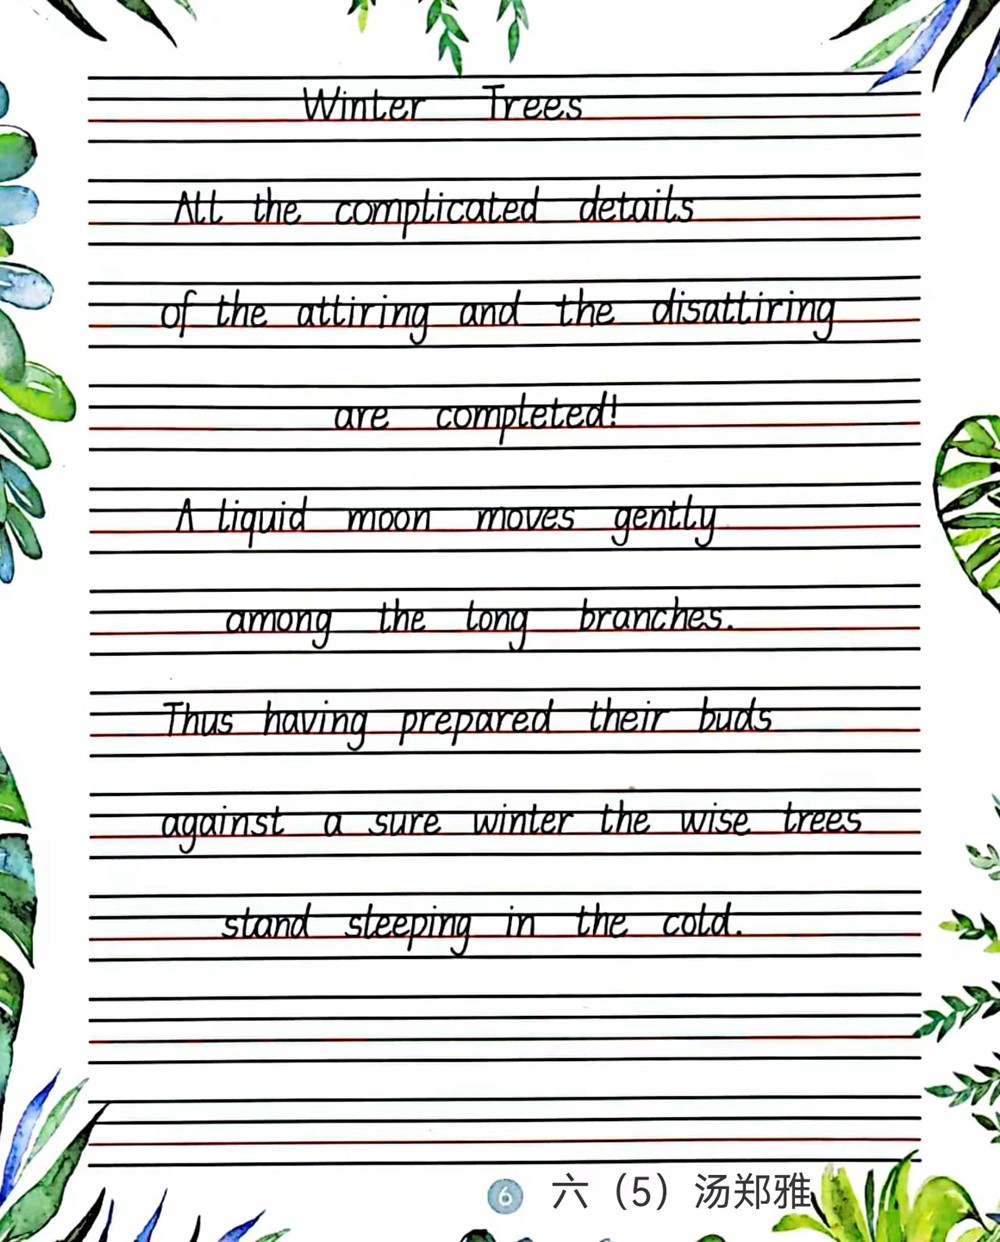 Winter Trees
All the complicated details
of the attiring and the disattiring
are completed!
A liquid moon moves gently
among the long branches.
Thus having prepared their buds
against a sure winter the wise trees
stand sleeping in the cold.
6 六（5）汤郑雅